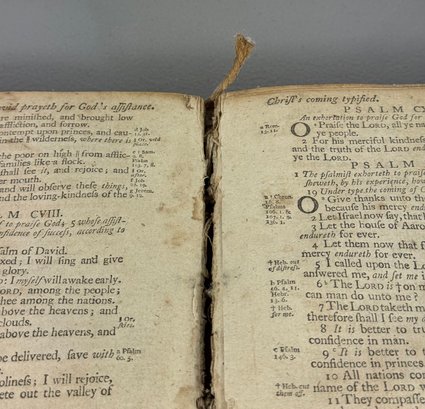 vid prayeth for God's aſſiſtance.
are miniſhed, and brought low
affliction, and ſorrow.
contempt upon princes, and cau-
in the ‖ wilderneſs, where there is
the poor on high ‖ from afflic-
families like a flock.
ſhall ſee it, and rejoice; and
her mouth.
and will obſerve theſe things;
and the loving-kindneſs of the
M CVIII.
to praiſe God, 5 whoſe aſſiſt-
fidence of ſucceſs, according to
Pſalm of David.
fixed; I will ſing and give
glory.
I myſelf will awake early.
LORD, among the people;
thee among the nations.
above the heavens; and
clouds.
above the heavens, and
be delivered, ſave with
Pſalm
60. 5.
holineſs; I will rejoice,
mete out the valley of
Chriſt's coming typified.
PSALM
An exhortation to praiſe God for
O Praiſe the LORD, all ye
ye people.
2 For his merciful kindneſs
and the truth of the LORD
ye the LORD.
PSALM
1 The pſalmiſt exhorteth to praiſe
ſheweth, by his experience, how
19 Under type the coming of
O Give thanks unto the
becauſe his mercy
2 Let Iſrael now ſay, that
3 Let the houſe of Aaron
endureth for ever.
4 Let them now that
mercy endureth for ever.
5 I called upon the
anſwered me, and ſet me
6 The LORD is † on
can man do unto me?
7 The LORD taketh
therefore ſhall I ſee my
8 It is better to
confidence in man.
9 It is better to
confidence in princes
10 All nations
name of the LORD
11 They compaſſed
† Heb.
of diſtreſs.
† Heb.
for me.
Pſalm
146. 3.
† Heb.
cut them
off.